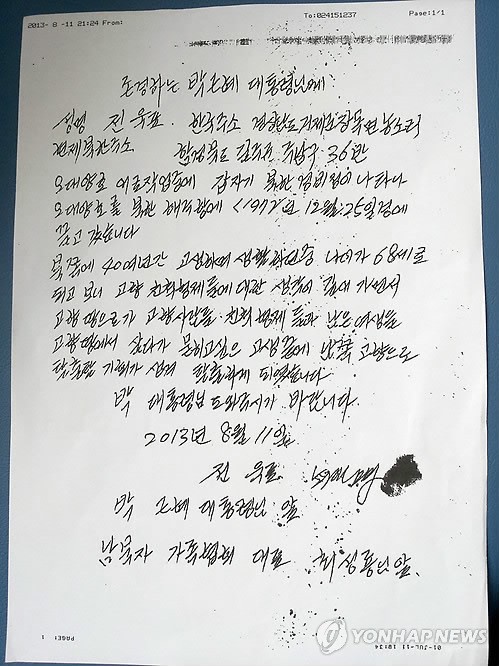 2013- 8 -11 21:24 From: To:024151237 Page:1/1
존경하는 박근혜 대통령님에
성명 전욱표. 한국주소 경상남도 거제군 장목면 농소리
현재 북한주소 함경북도 길주군 36반
오대양호 어로작업중에 갑자기 북한 경비정이 나타나
오대양호를 북한 해역쪽에 <1972년 12월:25일경에
끌고 갔습니다
북쪽에 40여년간 고생하며 생활하던중 나이가 68세로
되고 보니 고향 친척 형제들에 대한 생각이 간절해 가면서
고향 땅으로가 고향사람들. 친척 형제 들과 남은 여생을
고향땅에서 살다가 묻히고싶은 고생끝에 남쪽 고향으로
탈출할 기회가 생겨 탈출하게 되였습니다
박 대통령님 도와주시기 바랍니다.
2013년 8월 11일
전 욱표
박 근혜 대통령님 앞
납북자 가족협회 대표 최성룡님앞
PAGE: 1 01-JUL-11 10:34
YONHAP NEWS